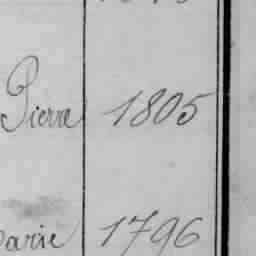 Pierre 1805
Marie 1796